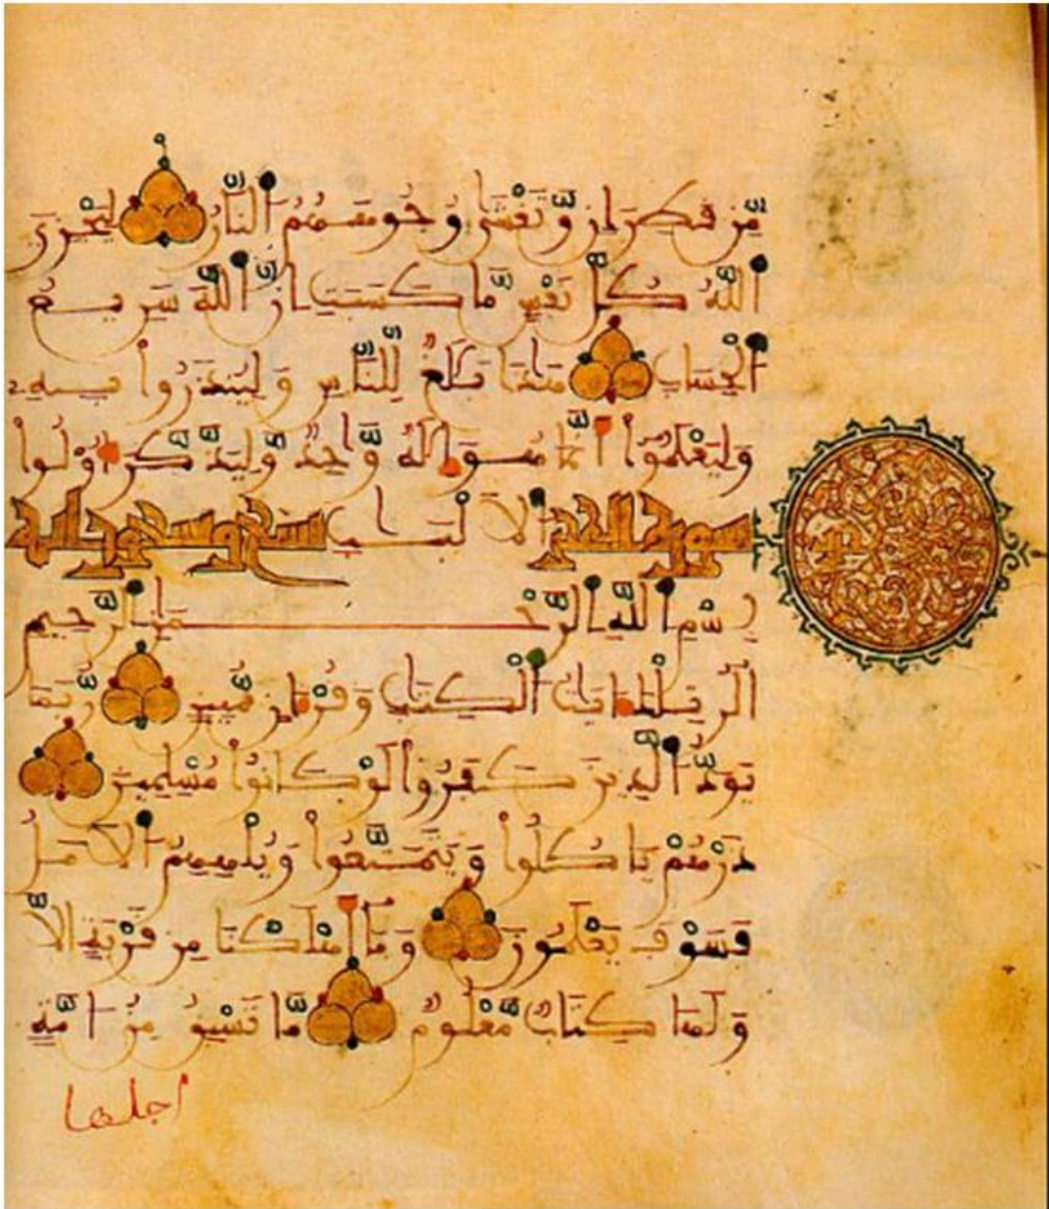 مِّن قَطِرَانٍ وَّتَغْشَىٰ وُجُوهَهُمُ النَّارُ لِيَجْزِيَ
اللَّهُ كُلَّ نَفْسٍ مَّا كَسَبَتِ انَّ اللَّهَ سَرِيعُ
الْحِسَابِ هَٰذَا بَلَٰغٌ لِّلنَّاسِ وَلِيُنذَرُوا بِهِ
وَلِيَعْلَمُوا أَنَّمَا هُوَ إِلَٰهٌ وَّاحِدٌ وَّلِيَذَّكَّرَ أُوْلُوا
سورة الحجر الَالْبَٰبِ تسع وتسعون اية
بِسْمِ اللَّهِ الرَّحْمَٰنِ الرَّحِيمِ
الَرَ تِلْكَ ءَايَٰتُ الْكِتَٰبِ وَقُرْءَانٍ مُّبِينٍ رُّبَمَا
يَوَدُّ الَّذِينَ كَفَرُوا لَوْ كَانُوا مُسْلِمِينَ
ذَرْهُمْ يَاكُلُوا وَيَتَمَتَّعُوا وَيُلْهِهِمُ الَامَلُ
فَسَوْفَ يَعْلَمُونَ وَمَا أَهْلَكْنَا مِن قَرْيَةٍ الَّا
وَلَهَا كِتَابٌ مَّعْلُومٌ مَّا تَسْبِقُ مِنُ امَّةٍ
اجلها